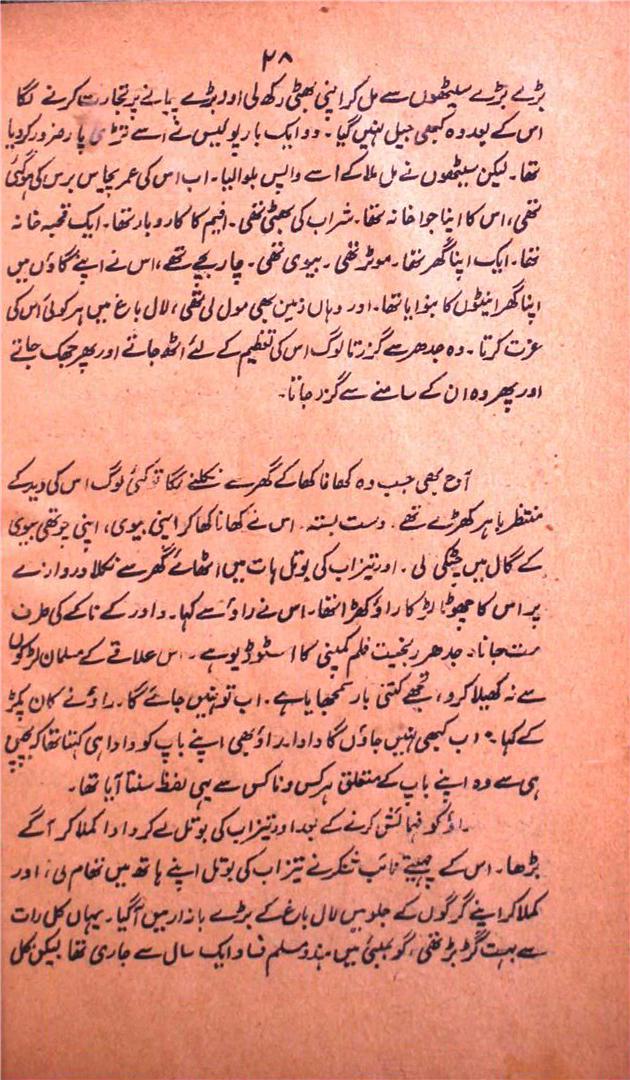 ۲۸
بڑے بڑے سیٹھوں سے مل کر اپنی بھٹی رکھ لی اور بڑے پیمانے پر تجارت کرنے لگا
اس کے بعد وہ کبھی جیل نہیں گیا۔ دو ایک بار پولیس نے اسے تڑی پار ضرور کر دیا
تھا۔ لیکن سیٹھوں نے مل ملا کے اسے واپس بلوا لیا۔ اب اس کی عمر پچاس برس کی ہو گئی
تھی، اس کا اپنا جوا خانہ تھا۔ شراب کی بھٹی تھی۔ افیم کا کاروبار تھا۔ ایک قحبہ خانہ
تھا۔ ایک اپنا گھر تھا۔ موٹر تھی۔ بیوی تھی۔ چار بچے تھے، اس نے اپنے گاؤں میں
اپنا گھر اینٹوں کا بنوایا تھا۔ اور وہاں زمین بھی مول لی تھی، لال باغ میں ہر کوئی اس کی
عزت کرتا۔ وہ جدھر سے گزرتا لوگ اس کی تعظیم کے لئے اٹھ جاتے اور پھر جھک جاتے
اور پھر وہ ان کے سامنے سے گزر جاتا۔
آج بھی جب وہ کھانا کھا کے گھر سے نکلنے لگا تو کئی لوگ اس کی دید کے
منتظر باہر کھڑے تھے۔ دست بستہ۔ اس نے کھانا کھا کر اپنی بیوی، اپنی چوتھی بیوی
کے گال میں چٹکی لی۔ اور تیزاب کی بوتل ہات میں اٹھائے گھر سے نکلا دروازے
پر اس کا چھوٹا لڑکا راؤ کھڑا تھا۔ اس نے راؤ سے کہا۔ داور کے ناکے کی طرف
مت جانا۔ جدھر رنجیت فلم کمپنی کا اسٹوڈیو ہے۔ اس علاقے کے مسلمان لڑکوں
سے نہ کھیلا کرو، تجھے کتنی بار سمجھایا ہے۔ اب تو نہیں جائے گا۔ راؤ نے کان پکڑ
کے کہا۔ اب کبھی نہیں جاؤں گا دادا۔ راؤ بھی اپنے باپ کو دادا ہی کہتا تھا کہ بچپن
ہی سے وہ اپنے باپ کے متعلق ہر کس و ناکس سے یہی لفظ سنتا آیا تھا۔
راؤ کو فہمائش کرنے کے بعد اور تیزاب کی بوتل لے کر دادا کملاکر آگے
بڑھا۔ اس کے چہیتے نائب شنکر نے تیزاب کی بوتل اپنے ہاتھ میں تھام لی، اور
کملاکر اپنے گرگوں کے جلو میں لال باغ کے بڑے بازار میں آ گیا۔ یہاں کل رات
سے بہت گڑبڑ تھی، گو بمبئی میں ہندو مسلم فساد ایک سال سے جاری تھا لیکن کل